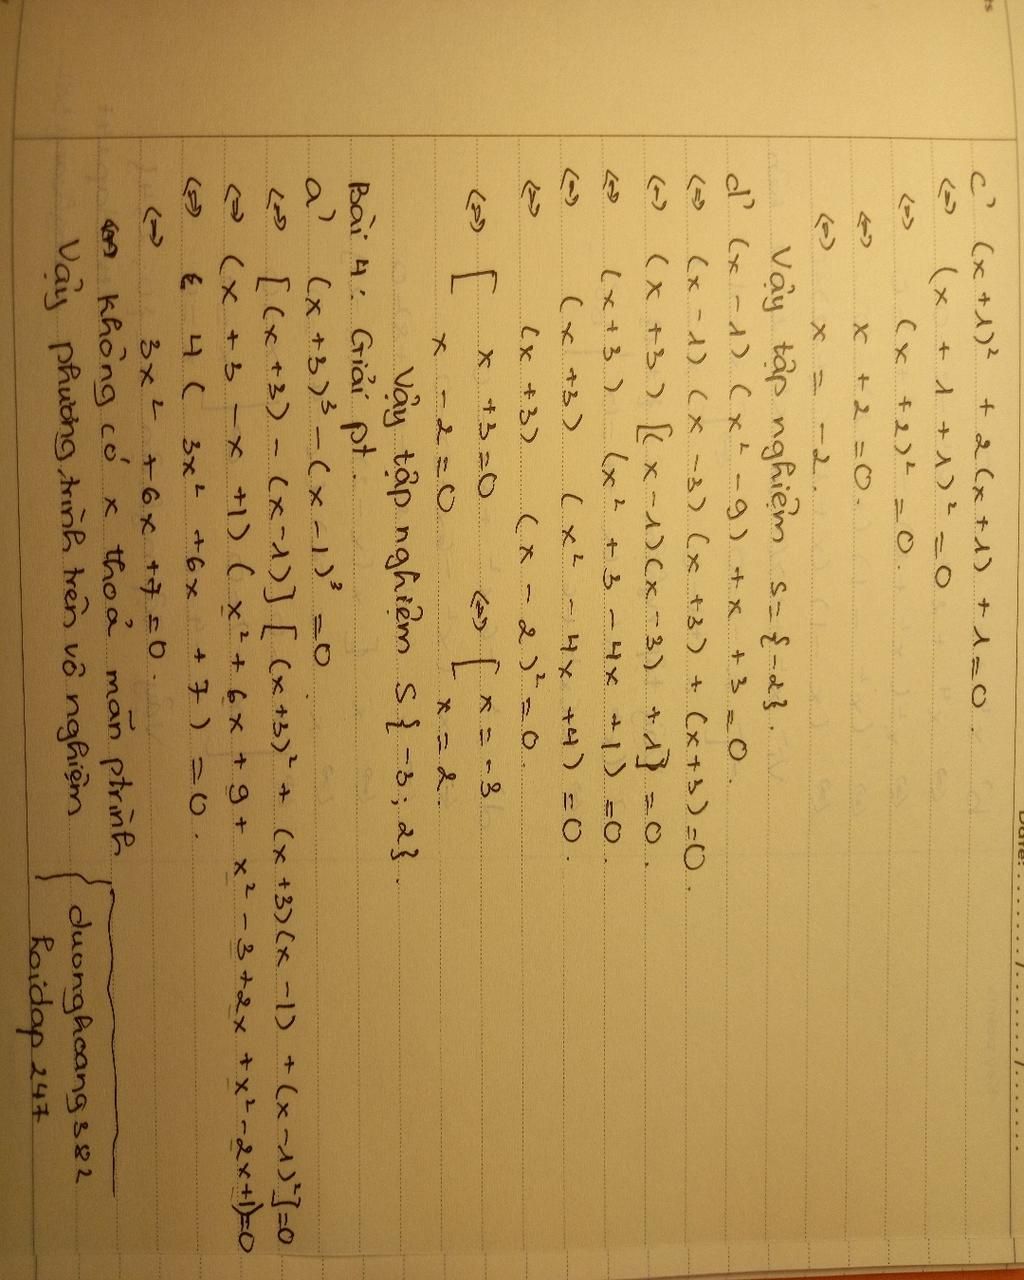 Date: ......./......./.......
c) (x+1)² + 2(x+1) + 1 = 0.
⇔ (x + 1 + 1)² = 0
⇔ (x + 2)² = 0.
⇔ x + 2 = 0.
⇔ x = -2.
Vậy tập nghiệm S = {-2}.
d) (x - 1)(x² - 9) + x + 3 = 0.
⇔ (x - 1)(x - 3)(x + 3) + (x+3) = 0.
⇔ (x + 3)[(x - 1)(x - 3) + 1] = 0.
⇔ (x+3) (x² + 3 - 4x + 1) = 0.
⇔ (x+3) (x² - 4x + 4) = 0.
⇔ (x+3) (x - 2)² = 0.
⇔ [ x + 3 = 0 ⇔ [ x = -3
x - 2 = 0 x = 2.
Vậy tập nghiệm S {-3; 2}.
Bài 4: Giải pt.
a) (x+3)³ - (x - 1)³ = 0.
⇔ [(x+3) - (x-1)][(x+3)² + (x+3)(x-1) + (x-1)²] = 0
⇔ (x + 3 - x + 1)(x² + 6x + 9 + x² - 3 + 2x + x² - 2x + 1) = 0
⇔ 4(3x² + 6x + 7) = 0.
⇔ 3x² + 6x + 7 = 0.
⇔ không có x thoả mãn ptrình
Vậy phương trình trên vô nghiệm
duonghoang382
hoidap247